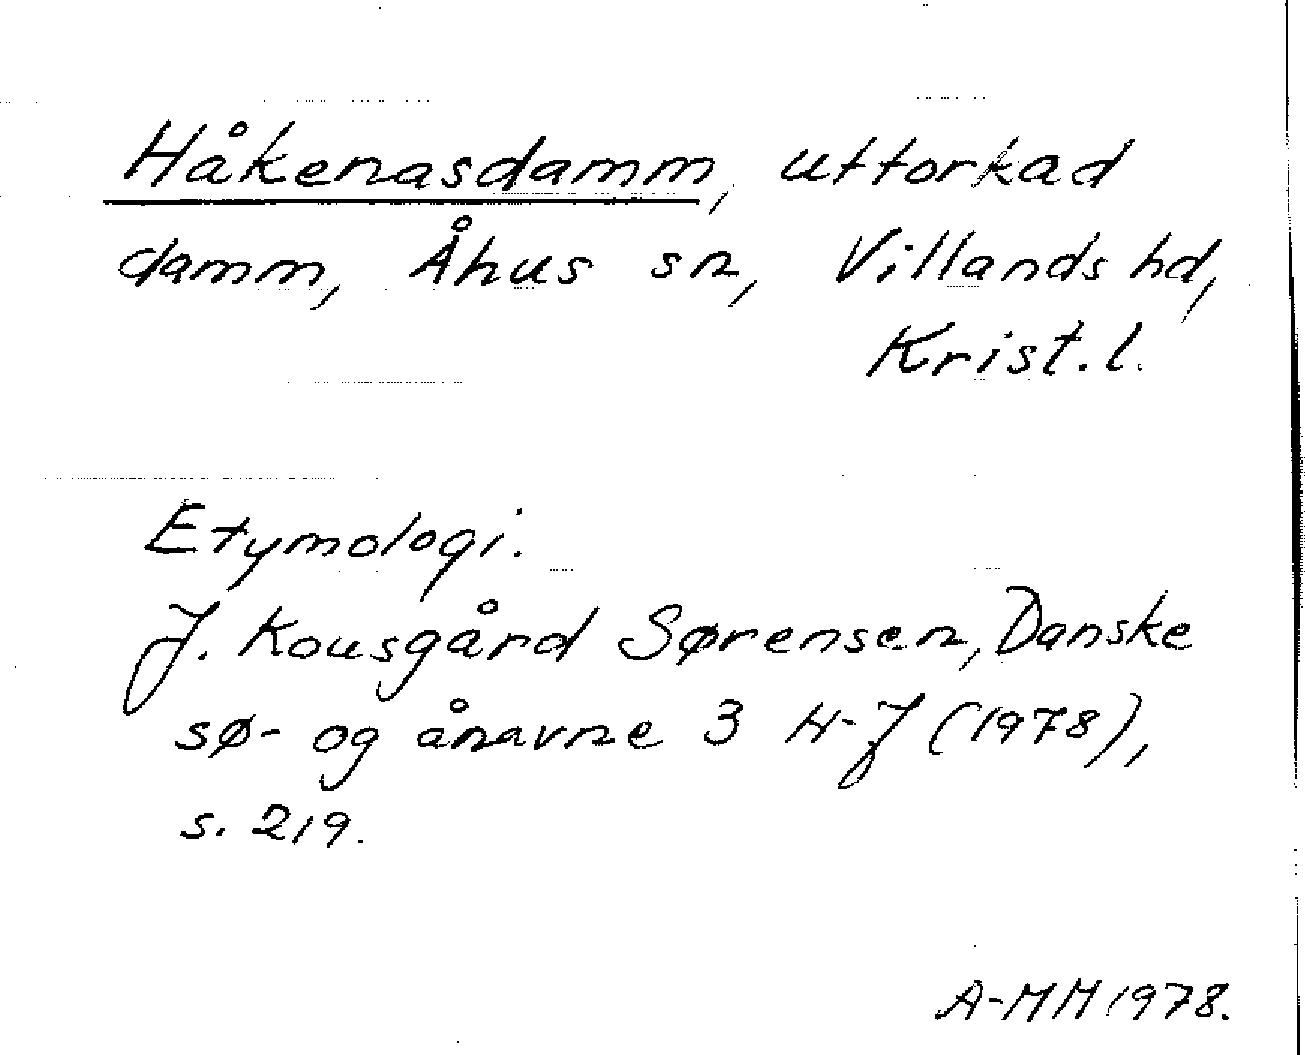 Håkenasdamm, uttorkad
damm, Åhus sn, Villands hd,
Krist. l.
Etymologi.
J. Kousgård Sørensen, Danske
sø- og ånavne 3 H-J (1978),
s. 219.
A-MM 1978.